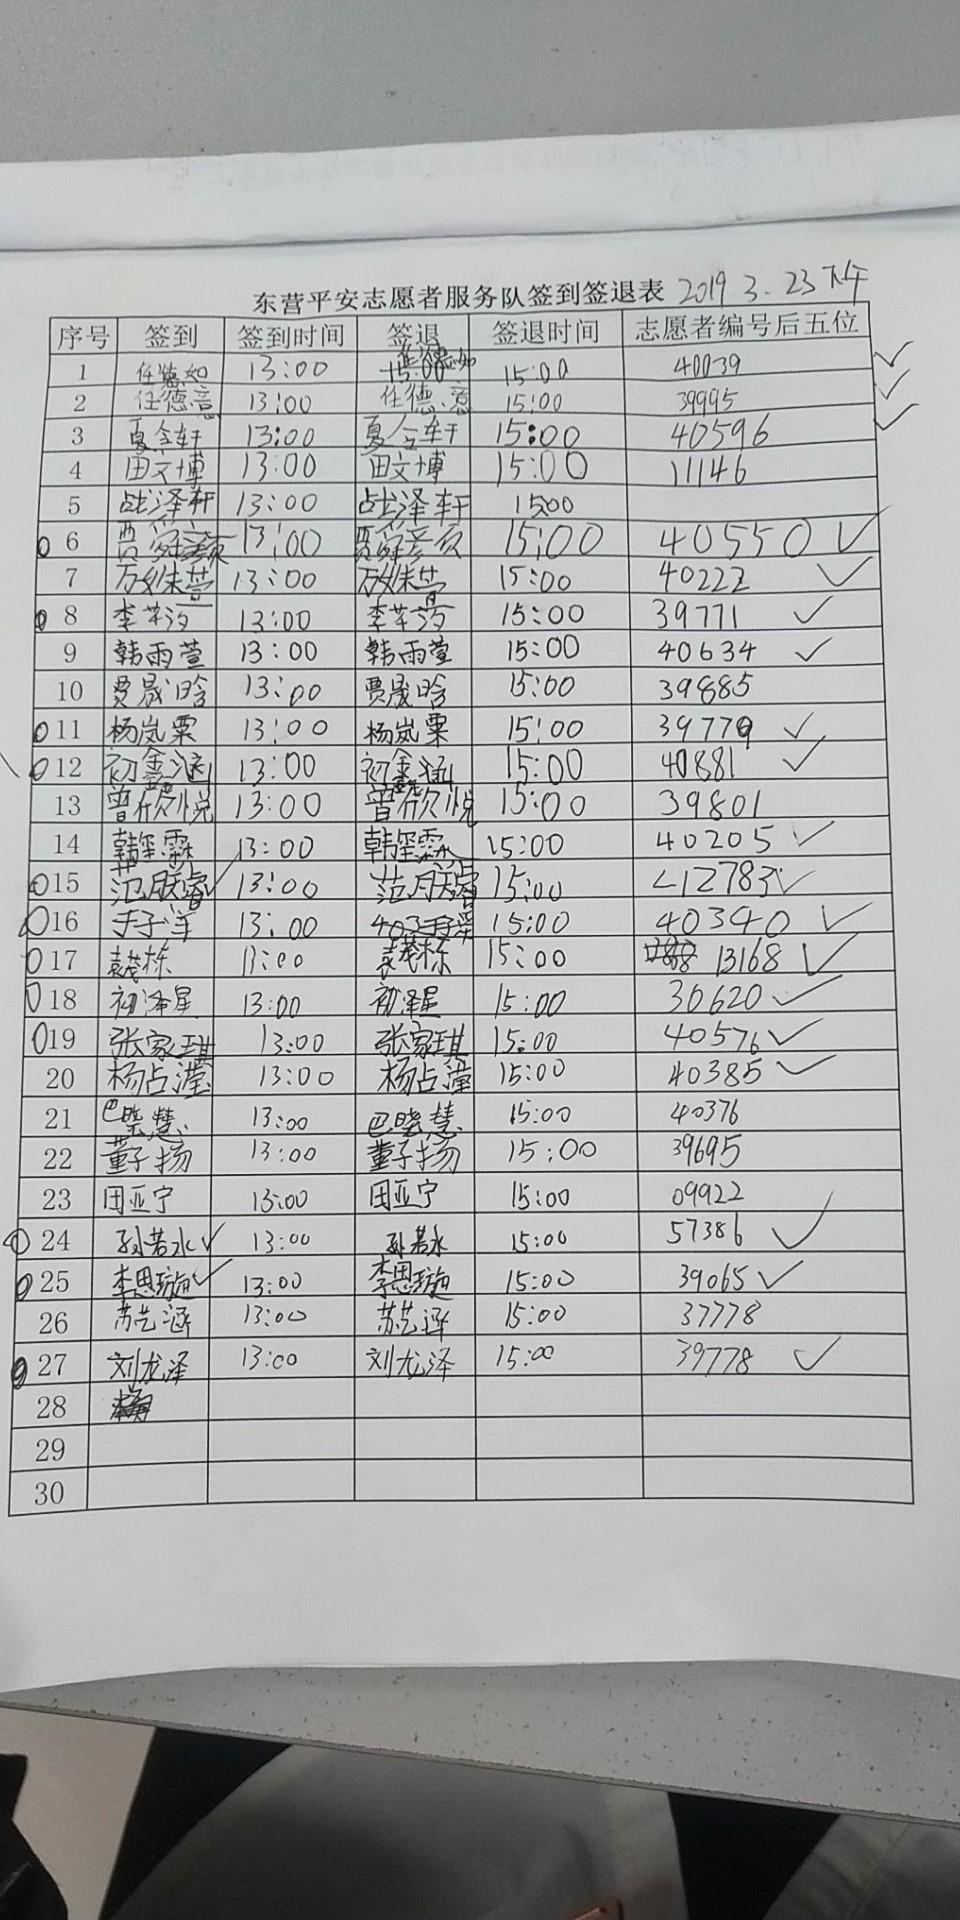 东营平安志愿者服务队签到签退表 2019.3.23下午
序号 签到 签到时间 签退 签退时间 志愿者编号后五位
1 任德如 13:00 15:00 15:00 40039
2 任德意 13:00 任德意 15:00 39995
3 夏令轩 13:00 夏令轩 15:00 40596
4 田文博 13:00 田文博 15:00 11146
5 战泽轩 13:00 战泽轩 15:00
6 13:00 15:00 40550
7 万姝萱 13:00 万姝萱 15:00 40222
8 13:00 15:00 39771
9 韩雨萱 13:00 韩雨萱 15:00 40634
10 贾晟晗 13:00 贾晟晗 15:00 39885
11 杨岚粟 13:00 杨岚粟 15:00 39779
12 初鑫涵 13:00 初鑫涵 15:00 40881
13 曾欣悦 13:00 曾欣悦 15:00 39801
14 13:00 15:00 40205
15 13:00 15:00 12783
16 13:00 15:00 40340
17 袁茂栋 13:00 袁茂栋 15:00 13168
18 初泽星 13:00 初泽星 15:00 30620
19 张家琪 13:00 张家琪 15:00 40576
20 杨占滢 13:00 杨占滢 15:00 40385
21 巴晓慧 13:00 巴晓慧 15:00 40376
22 董子扬 13:00 董子扬 15:00 39695
23 田亚宁 13:00 田亚宁 15:00 09922
24 孙若水 13:00 孙若水 15:00 57386
25 李思璇 13:00 李思璇 15:00 39065
26 苏艺涵 13:00 苏艺涵 15:00 37778
27 刘龙泽 13:00 刘龙泽 15:00 39778
28
29
30